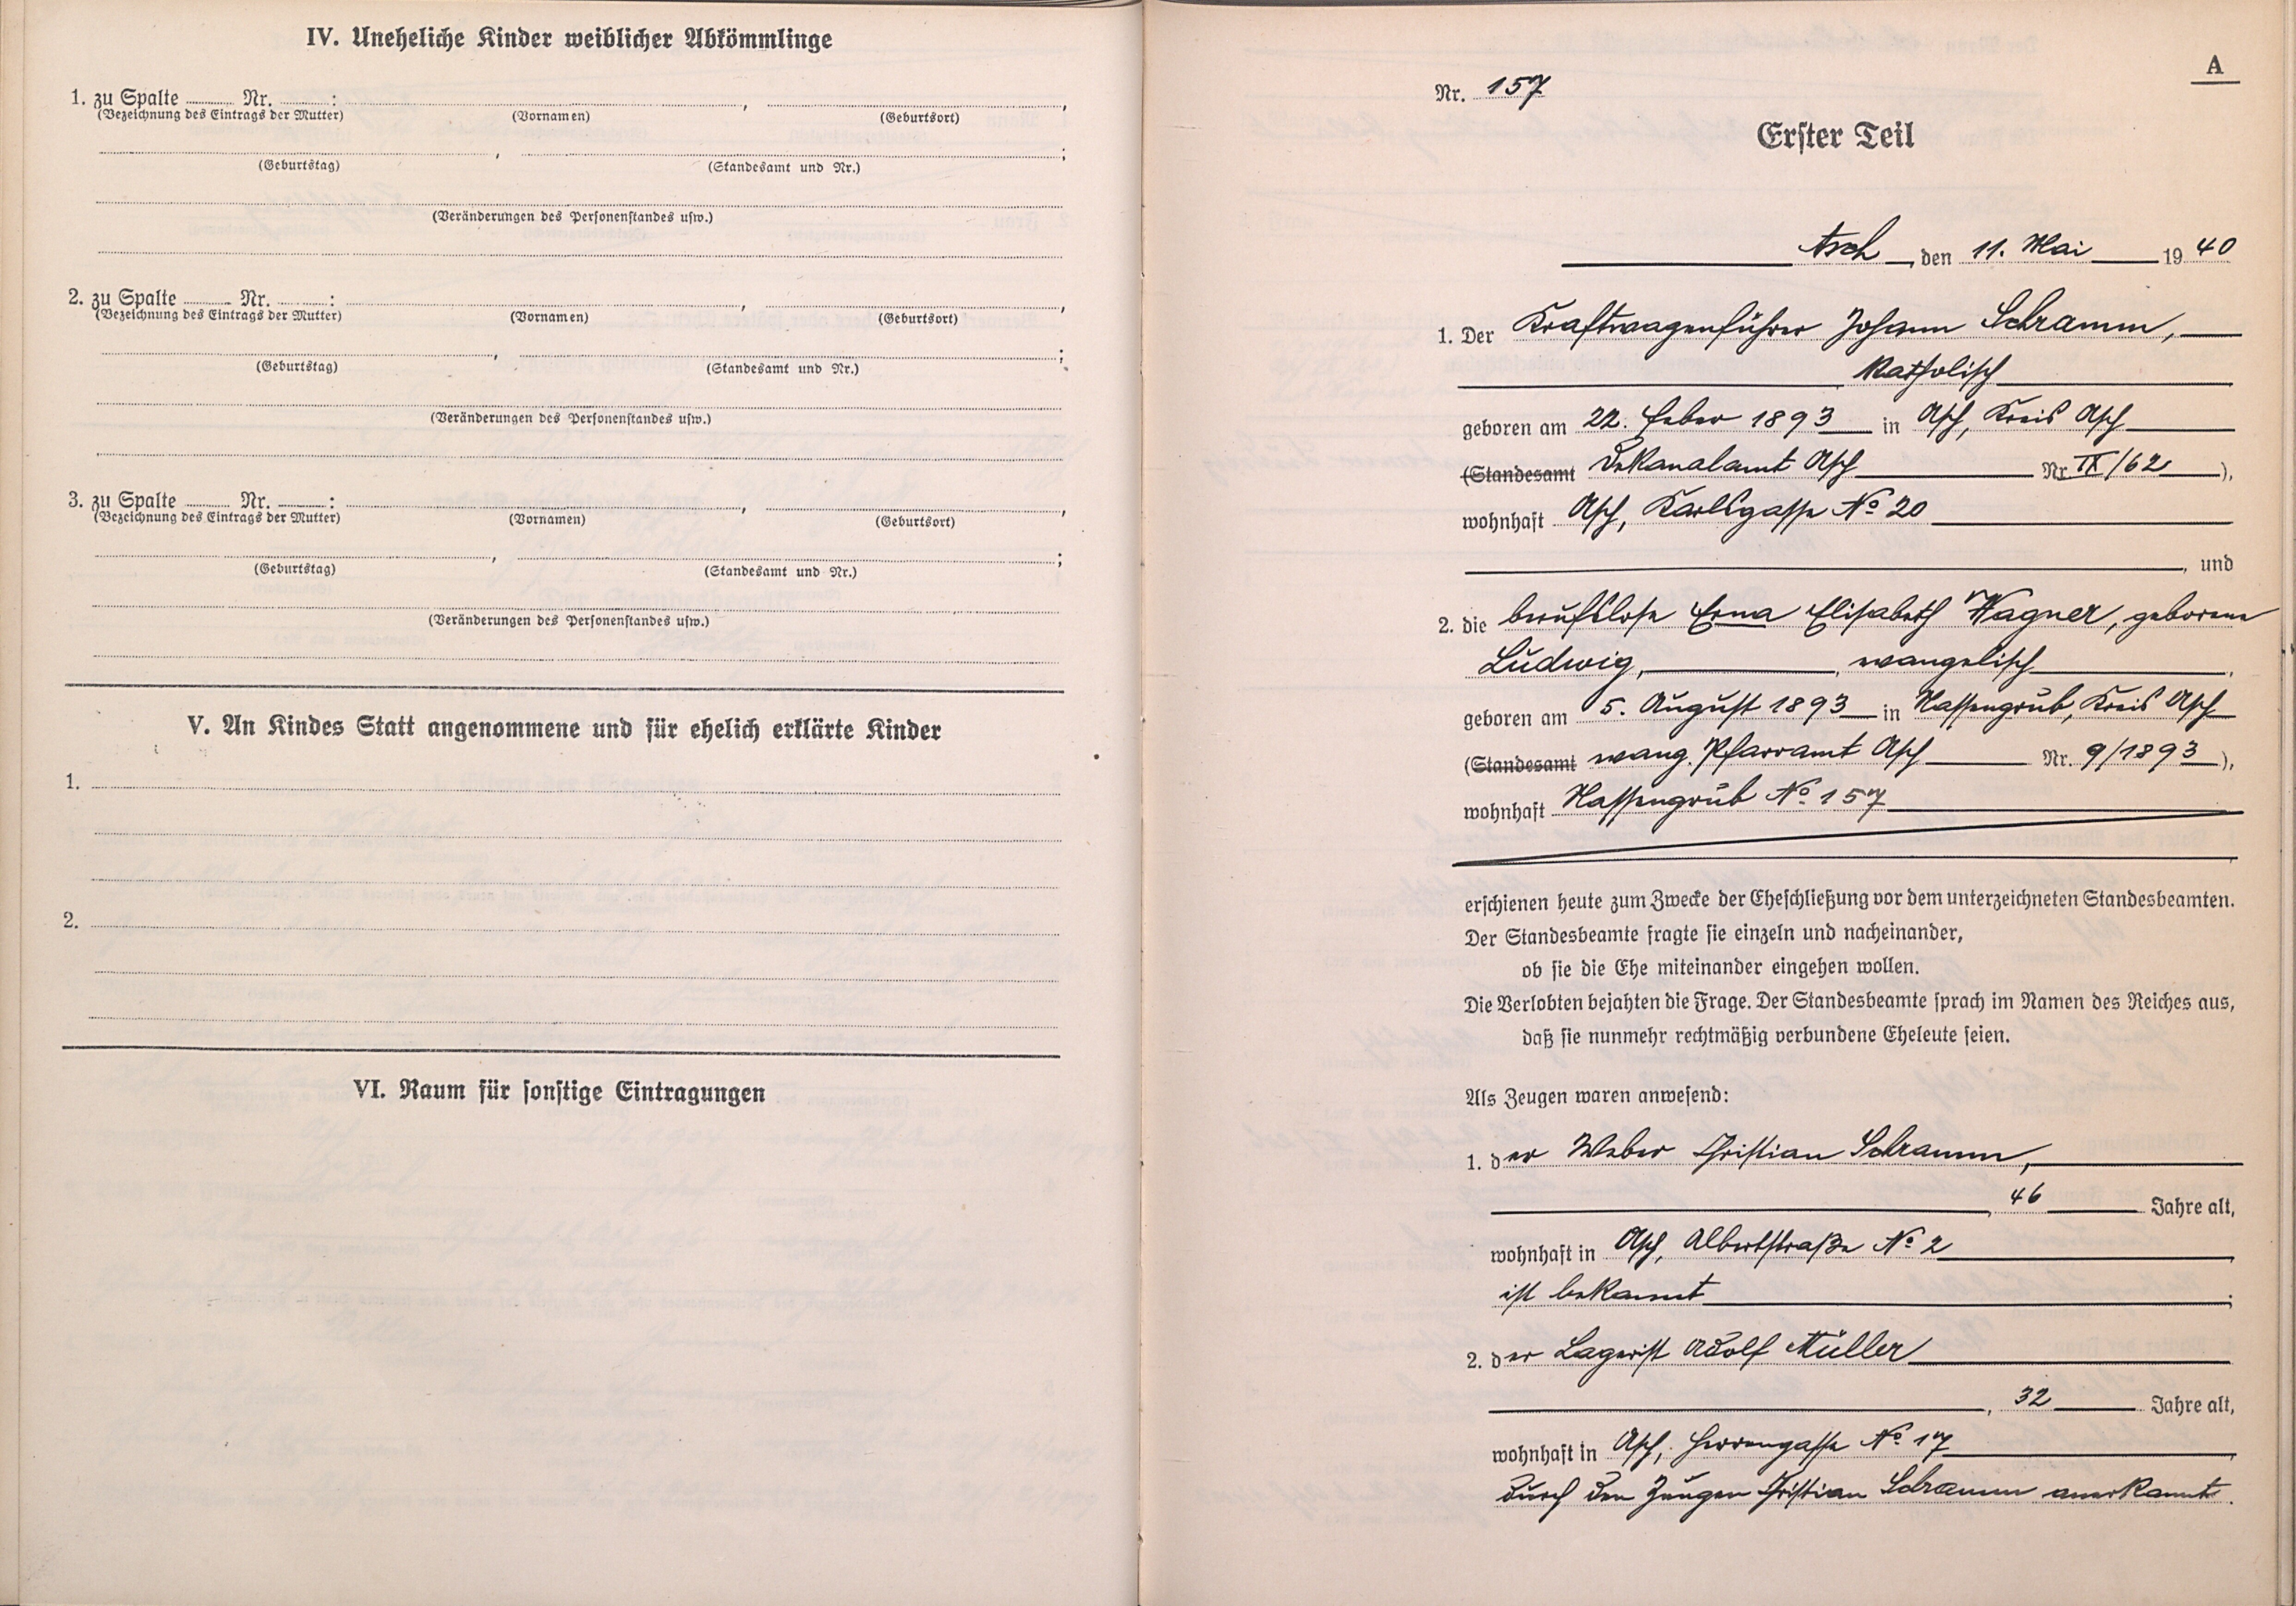 IV. Uneheliche Kinder weiblicher Abkömmlinge
1. zu Spalte Nr. : , ,
(Bezeichnung des Eintrags der Mutter) (Vornamen) (Geburtsort)
, ;
(Geburtstag) (Standesamt und Nr.)
(Veränderungen des Personenstandes usw.)
2. zu Spalte Nr. : , ,
(Bezeichnung des Eintrags der Mutter) (Vornamen) (Geburtsort)
, ;
(Geburtstag) (Standesamt und Nr.)
(Veränderungen des Personenstandes usw.)
3. zu Spalte Nr. : , ,
(Bezeichnung des Eintrags der Mutter) (Vornamen) (Geburtsort)
, ;
(Geburtstag) (Standesamt und Nr.)
(Veränderungen des Personenstandes usw.)
V. An Kindes Statt angenommene und für ehelich erklärte Kinder
1.
2.
VI. Raum für sonstige Eintragungen
A
Nr. 157
Erster Teil
Asch, den 11. Mai 1940
1. Der Kraftwagenführer Johann Schramm,
katholisch
geboren am 22. Feber 1893 in Asch, Kreis Asch
(Standesamt Dekanalamt Asch Nr. IX/62),
wohnhaft Asch, Karlsgasse No 20
, und
2. die berufslose Erna Elisabeth Wagner, geborene
Ludwig, , evangelisch,
geboren am 5. August 1893 in Nassengrub, Kreis Asch
(Standesamt evang. Pfarramt Asch Nr. 9/1893),
wohnhaft Nassengrub No 157
erschienen heute zum Zwecke der Eheschließung vor dem unterzeichneten Standesbeamten.
Der Standesbeamte fragte sie einzeln und nacheinander,
ob sie die Ehe miteinander eingehen wollen.
Die Verlobten bejahten die Frage. Der Standesbeamte sprach im Namen des Reiches aus,
daß sie nunmehr rechtmäßig verbundene Eheleute seien.
Als Zeugen waren anwesend:
1. der Weber Christian Schramm,
, 46 Jahre alt,
wohnhaft in Asch, Albertstraße No 2,
ist bekannt;
2. der Lagerist Adolf Müller
, 32 Jahre alt,
wohnhaft in Asch, Herrengasse No 17,
durch den Zeugen Christian Schramm anerkannt.